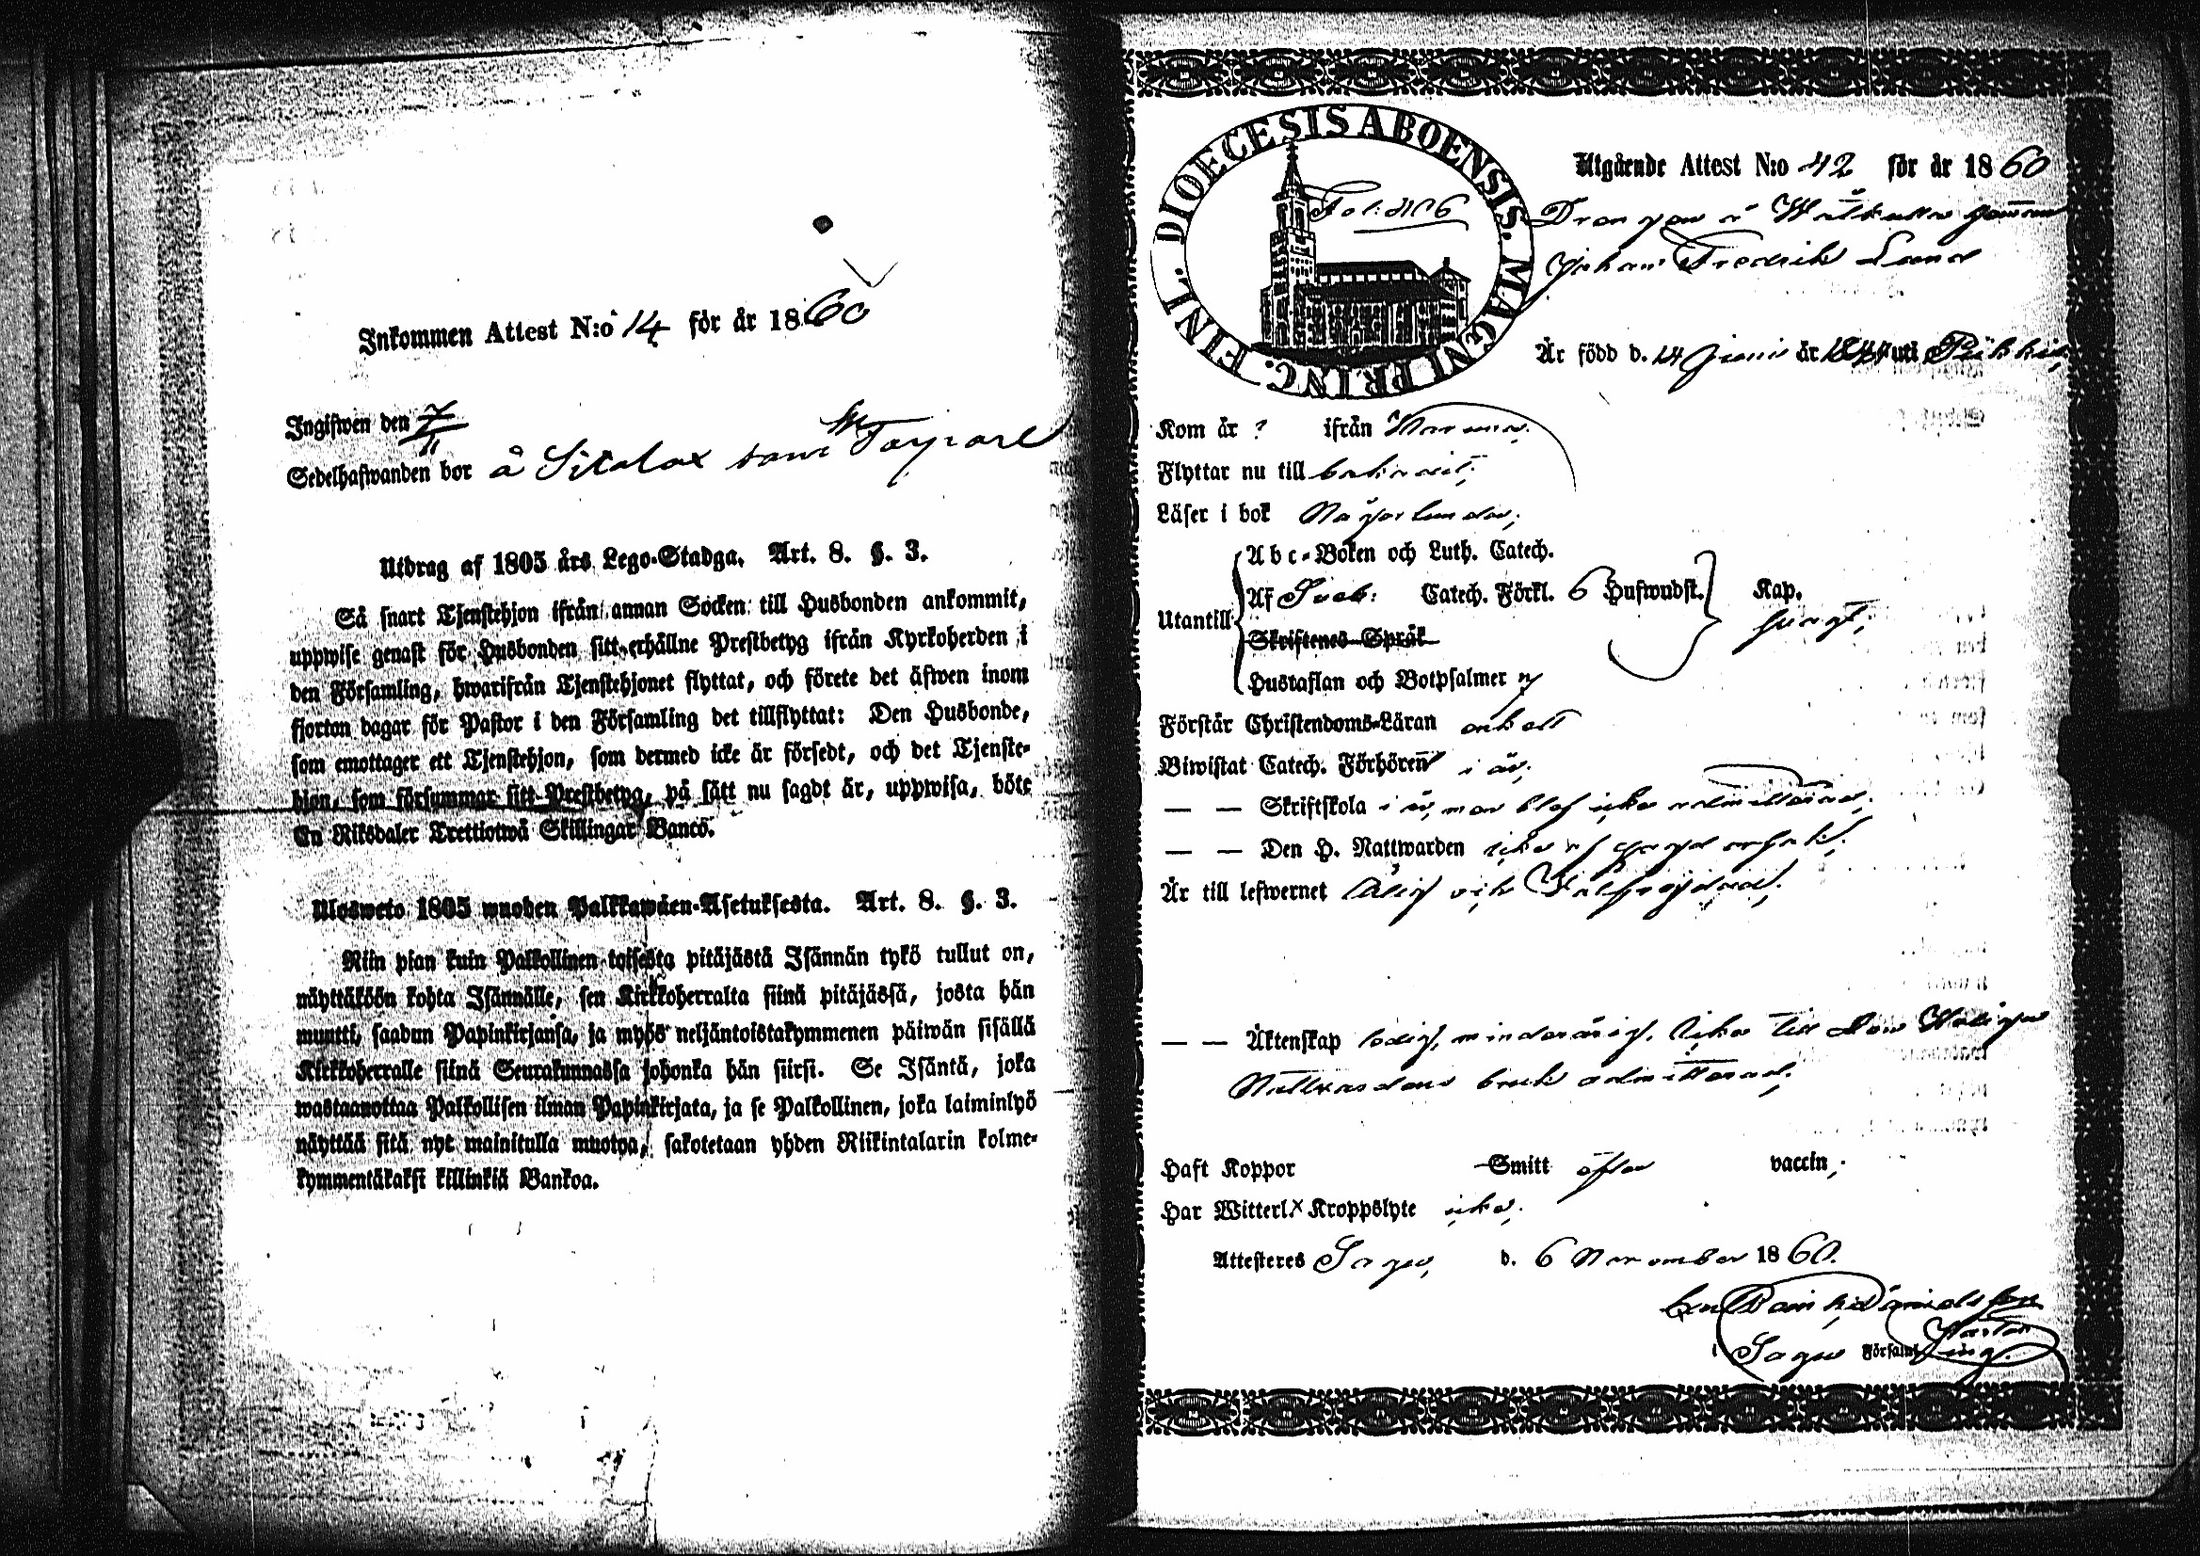 Inkommen Attest N:o 14 för år 1860
Ingifwen den 7/11
Sedelhafwanden bor å Sitalax
Utdrag af 1805 års Lego-Stadga. Art. 8. §. 3.
Så snart Tjenstehjon ifrån annan Socken till Husbonden ankommit,
uppwise genast för Husbonden sitt erhållne Prestbetyg ifrån Kyrkoherden i
den Församling, hwarifrån Tjenstehjonet flyttat, och förete det äfwen inom
fjorton dagar för Pastor i den Församling det tillflyttat: Den Husbonde,
som emottager ett Tjenstehjon, som dermed icke är försedt, och det Tjenste-
hjon, som försummar sitt Prestbetyg, på sätt nu sagdt är, uppwisa, böte
En Riksdaler Trettiotwå Skillingar Banco.
Ulosweto 1805 wuoden Palkkawäen-Asetuksesta. Art. 8. §. 3.
Niin pian kuin Palkollinen toisesta pitäjästä Isännän tykö tullut on,
näyttäköön kohta Isännälle, sen Kirkkoherralta siinä pitäjässä, josta hän
muutti, saadun Papinkirjansa, ja myös neljäntoistakymmenen päiwän sisällä
Kirkkoherralle siinä Seurakunnassa johonka hän siirsi. Se Isäntä, joka
wastaanottaa Palkollisen ilman Papinkirjata, ja se Palkollinen, joka laiminlyö
näyttää sitä nyt mainitulla muotoa, sakotetaan yhden Riikintalarin kolme-
kymmentäkaksi killinkiä Bankoa.
DIOECESIS ABOENSIS. MAGNI PRINC. FINL.
Utgående Attest N:o 42 för år 1860
Drengen
Johan Fredrik Lund
Är född d. 14 Junii år uti Piikkis,
Kom år ? ifrån
Flyttar nu till
Läser i bok Någorlunda;
Abc-Boken och Luth. Catech.
Utantill Af Sveb: Catech. Förkl. 6 Hufwudst. Kap.
Skriftenes Språk
Hustaflan och Botpsalmer
Förstår Christendoms-Läran enkelt
Biwistat Catech. Förhören i år;
— — Skriftskola i år, men blef icke admitterad;
— — Den H. Nattwarden icke af
Är till lefwernet
— — Äktenskap ledig, minderårig. Icke till den Heliga
Nattvardens bruk admitterad;
Haft Koppor Smitt efter vaccin;
Har Witterl. Kroppslyte icke;
Attesteres Sagu, d. 6 November 1860.
Pastor
i Sagu Församling.